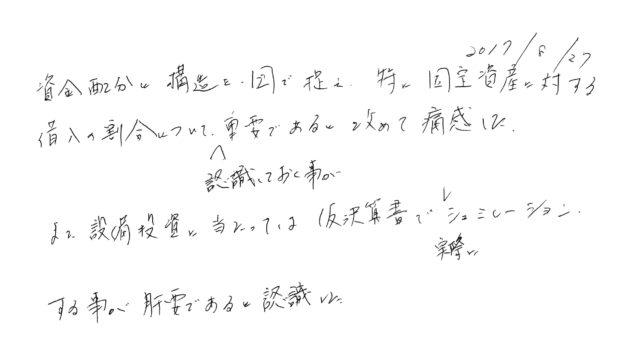 2017/8/27
資金配分と構造を図で捉え、特に固定資産に対する
借入の割合について、重要であると改めて痛感した。
認識しておく事が
また設備投資に当たっては仮決算書でシュミレーション
実際に
する事が肝要であると認識した